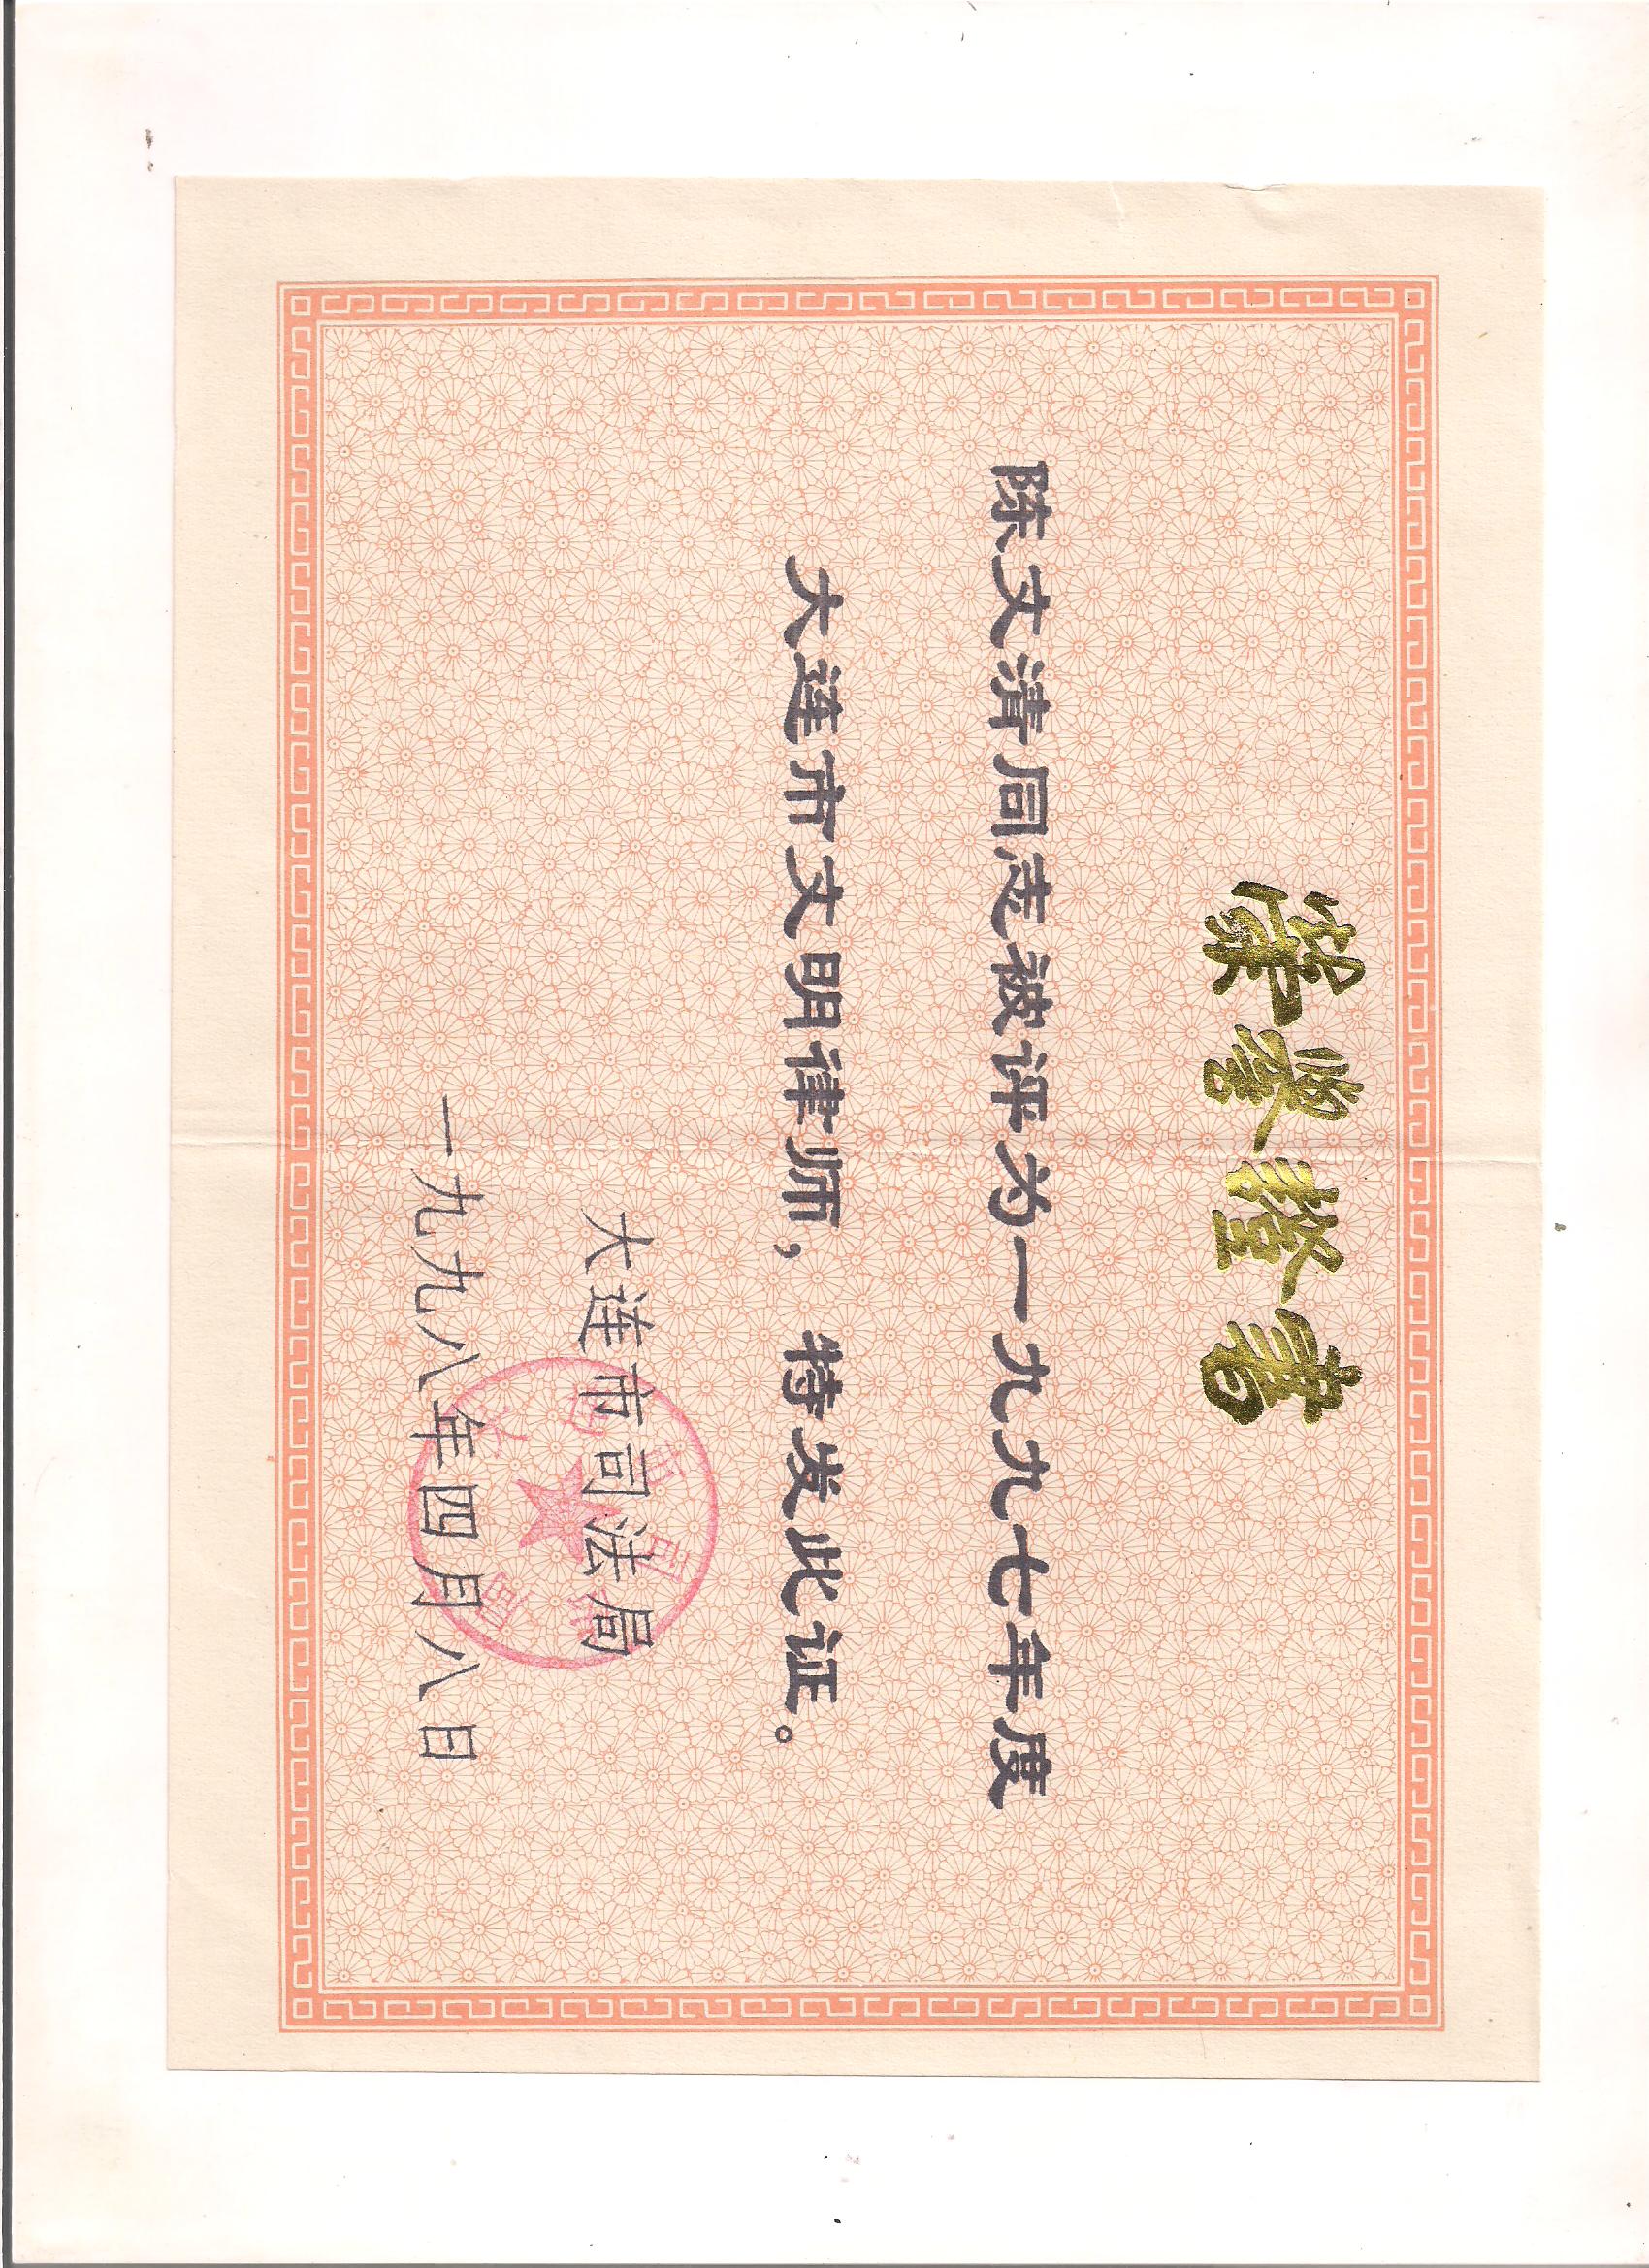 榮譽證書
陈文清同志被评为一九九七年度
大连市文明律师，特发此证。
大连市司法局
一九九八年四月八日
大连市司法局